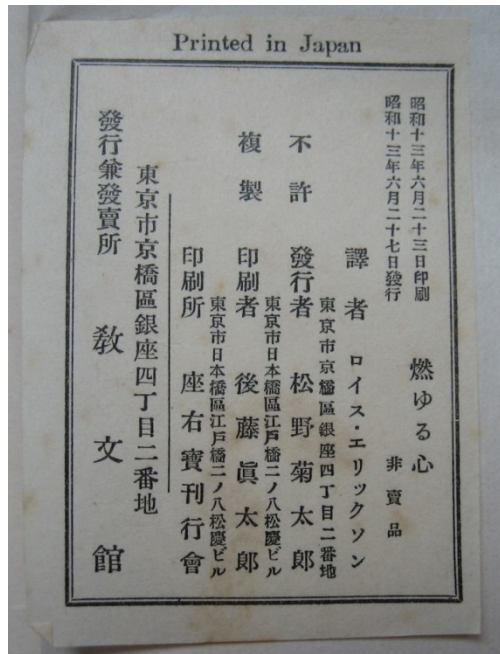 Printed in Japan
昭和十三年六月二十三日印刷
昭和十三年六月二十七日發行
燃ゆる心
非賣品
譯者 ロイス・エリックソン
東京市京橋區銀座四丁目二番地
不許 發行者 松野菊太郎
東京市日本橋區江戸橋二ノ八松慶ビル
複製 印刷者 後藤眞太郎
東京市日本橋區江戸橋二ノ八松慶ビル
印刷所 座右寶刊行會
東京市京橋區銀座四丁目二番地
發行兼發賣所 敎文館